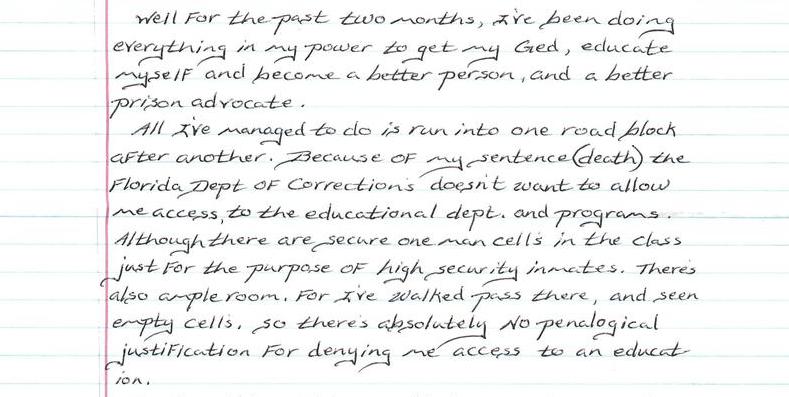 Well For the past two months, I've been doing
everything in my power to get my Ged, educate
myself and become a better person, and a better
prison advocate.
All I've managed to do is run into one road block
after another. Because of my sentence (death) the
Florida Dept of Corrections doesn't want to allow
me access, to the educational dept. and programs.
Although there are secure one man cells in the class
just For the purpose of high security inmates. There's
also ample room. For I've walked pass there, and seen
empty cells, so there's absolutely No penalogical
justification For denying me access to an educat-
ion.